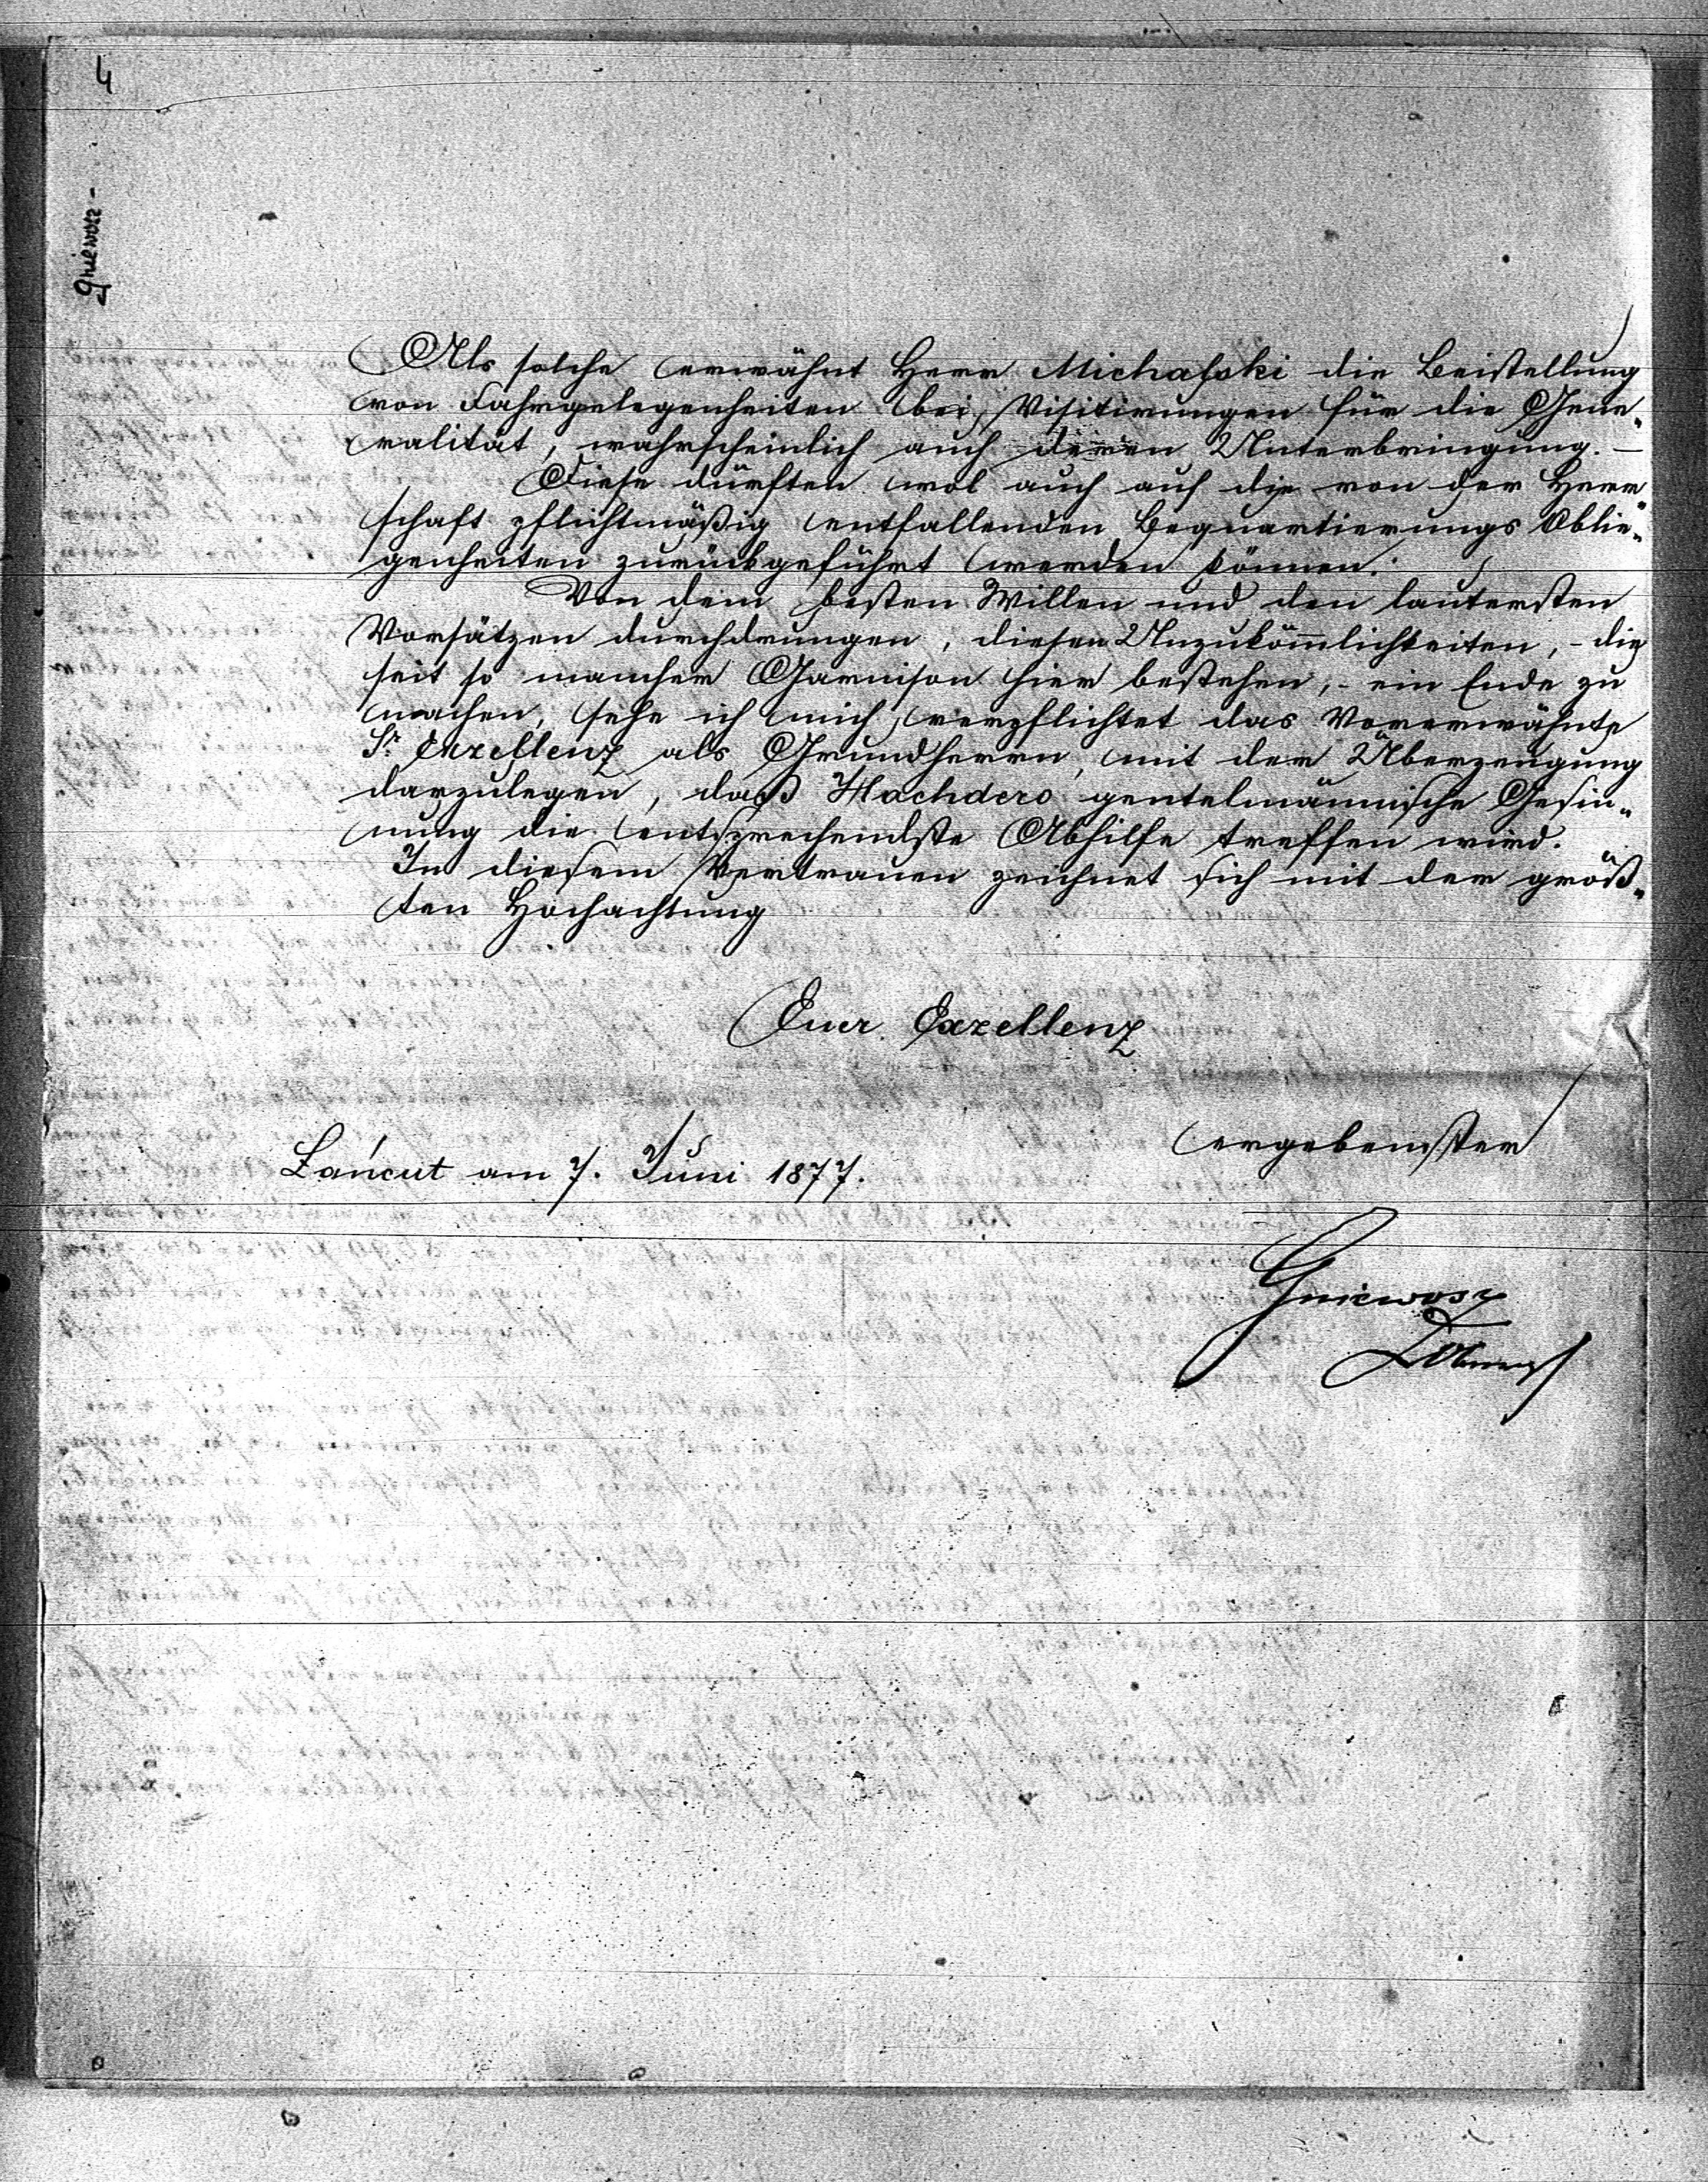 4
Gniewosz -
Als solche erwähnt Herr Michalski die Beistellung
von Fahrgelegenheiten bei Visitirungen für die Gene„
ralität, wahrscheinlich auch deren Unterbringung. —
Diese dürften wol auch auf die von der Herr„
schaft pflichtmäßig entfallenden Bequartierungs Oblie„
genheiten zurückgeführt werden können.
Von dem besten Willen und den lautersten
Vorsätzen durchdrungen, diesen Unzukom̅lichkeiten, - die
seit so mancher Garnison hier bestehen, - ein Ende zu
machen, sehe ich mich verpflichtet das Vorerwähnte
Sr Exzellenz als Grundherrn, mit der Überzeugung
darzulegen, daß Hochdero gentelmännische Gesin„
nung die entsprechendste Abhilfe treffen wird.
In diesem Vertrauen zeichnet sich mit der größ„
ten Hochachtung
Euer Exzellenz
ergebenster
Łańcut am 7. Juni 1877.
Gniewosz